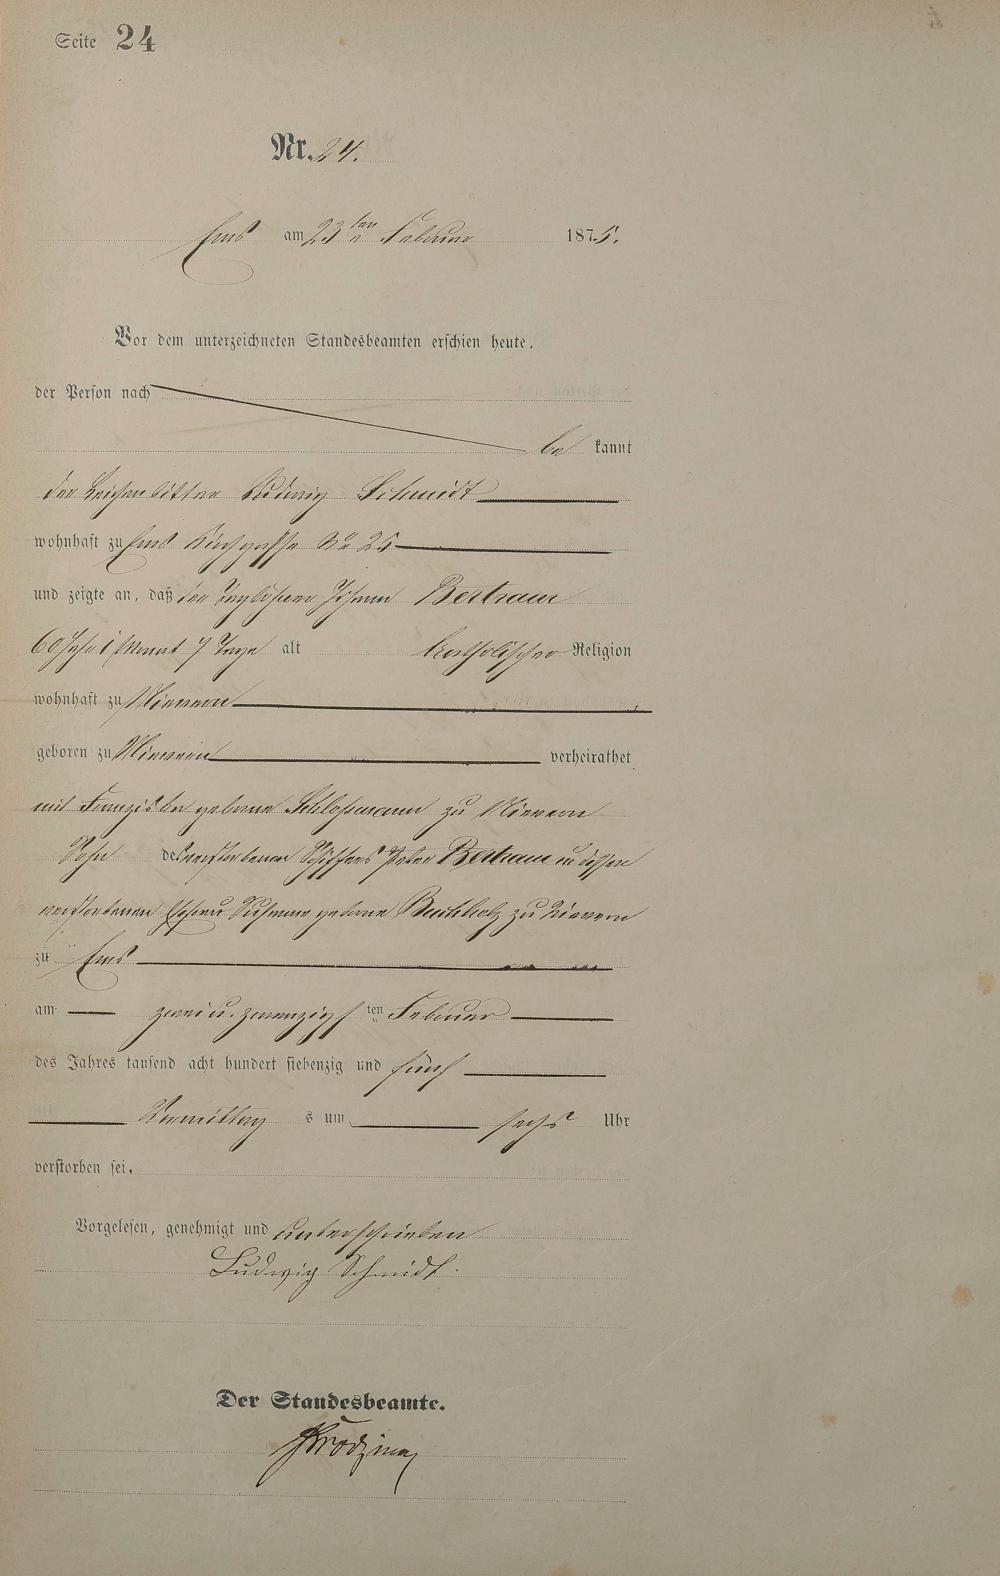 Seite 24
Nr. 24.
Ems am 23ten Februar 1875.
Vor dem unterzeichneten Standesbeamten erschien heute,
der Person nach
be kannt
der Leichenbitter Ludwig Schmidt
wohnhaft zu Ems Kirchgasse No 25
und zeigte an, daß der Taglöhner Johann Bertram
60 Jahr 1 Monat 7 Tage alt katholischer Religion
wohnhaft zu Nievern
geboren zu Nievern verheirathet
mit Franziska geborne Schloßmann zu Nievern
Sohn des verstorbenen Schiffers Peter Bertram u dessen
verstorbenen Ehefrau Susanna geborne Buchholz zu Nievern
zu Ems
am zwei u. zwanzigsten Februar
des Jahres tausend acht hundert siebenzig und fünf
Vormittag s um sechs Uhr
verstorben sei.
Vorgelesen, genehmigt und unterschrieben
Ludwig Schmidt.
Der Standesbeamte.